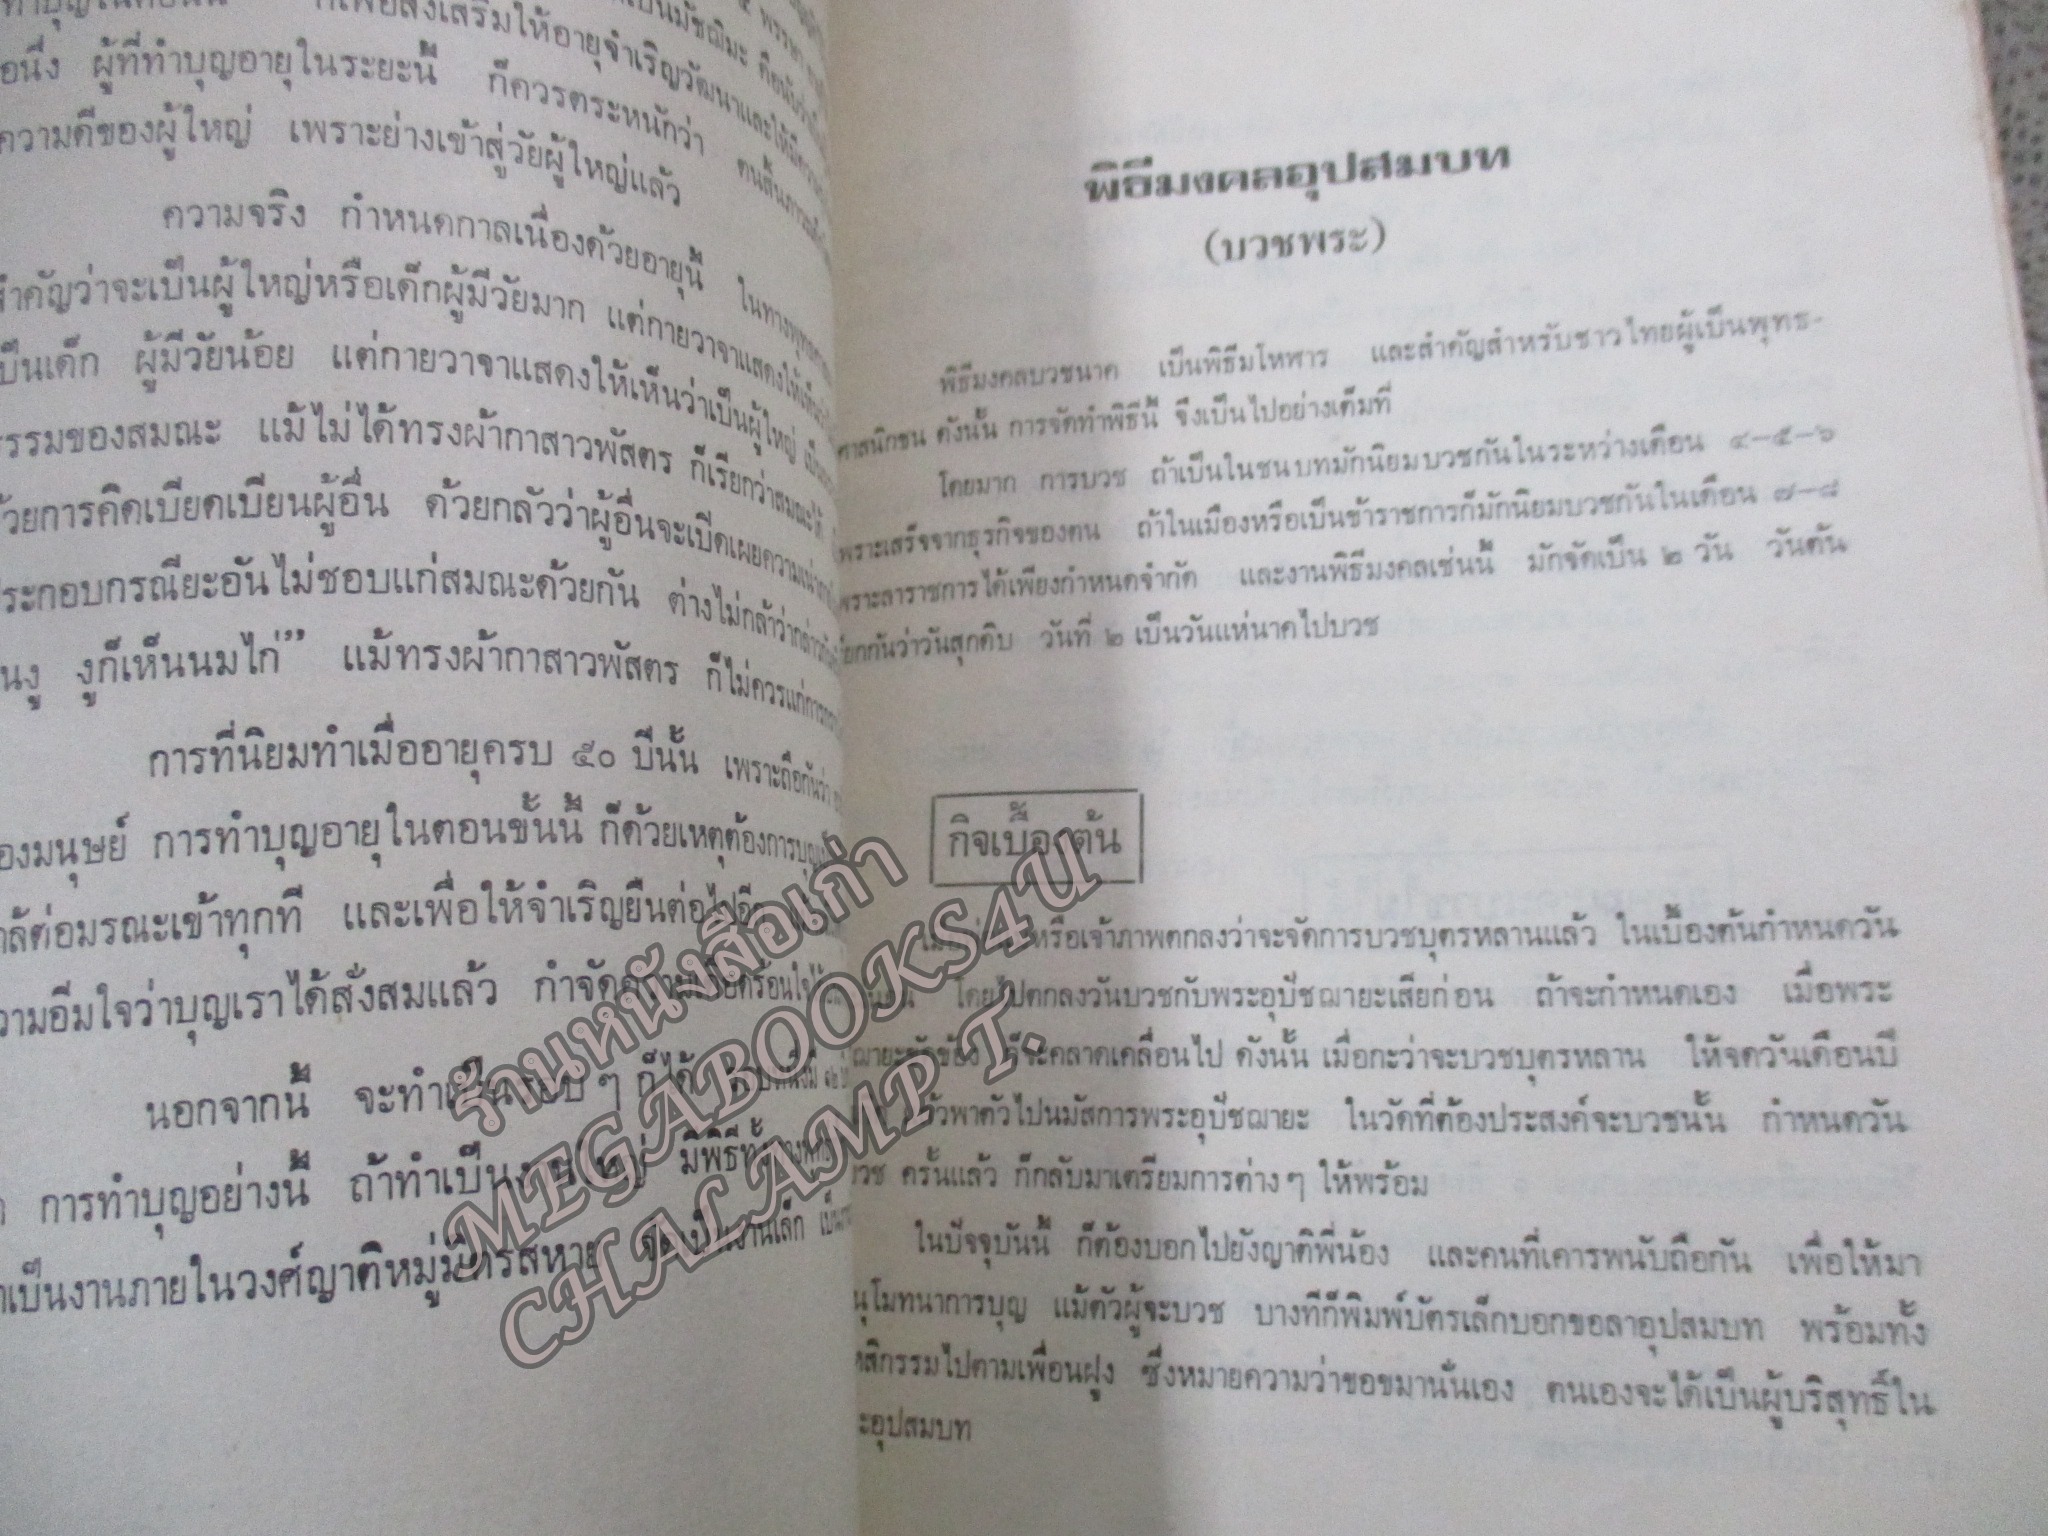 ก็เพื่อส่งเสริมให้อายุจำเริญวัฒนาและให้มีความ
ผู้ที่ทำบุญอายุในระยะนี้ ก็ควรตระหนักว่า
ความดีของผู้ใหญ่ เพราะย่างเข้าสู่วัยผู้ใหญ่แล้ว
ความจริง กำหนดกาลเนื่องด้วยอายุนี้
สำคัญว่าจะเป็นผู้ใหญ่หรือเด็กผู้มีวัยมาก แต่กายวาจาแสดงให้เห็นว่า
เป็นเด็ก ผู้มีวัยน้อย แต่กายวาจาแสดงให้เห็นว่าเป็นผู้ใหญ่
ธรรมของสมณะ แม้ไม่ได้ทรงผ้ากาสาวพัสตร ก็เรียกว่าสมณะได้
ด้วยการคิดเบียดเบียนผู้อื่น ด้วยกลัวว่าผู้อื่นจะเปิดเผยความ
ประกอบกรณียะอันไม่ชอบแก่สมณะด้วยกัน ต่างไม่กล้าว่ากล่าว
นงู งูก็เห็นนมไก่” แม้ทรงผ้ากาสาวพัสตร ก็ไม่ควรแก่การ
การที่นิยมทำเมื่ออายุครบ ๕๐ ปีนั้น เพราะถือกันว่า
ของมนุษย์ การทำบุญอายุในตอนขั้นนี้ ก็ด้วยเหตุต้องการบุญ
ใกล้ต่อมรณะเข้าทุกที และเพื่อให้จำเริญยืนต่อไปอีก
ความอิ่มใจว่าบุญเราได้สั่งสมแล้ว กำจัด
นอกจากนี้ จะทำเป็นรอบๆ ก็ได้
การทำบุญอย่างนี้ ถ้าทำเป็นงานใหญ่ มีพิธีทั้ง
เป็นงานภายในวงศ์ญาติหมู่มิตรสหาย จัดเป็นงานเล็ก
พิธีมงคลอุปสมบท
(บวชพระ)
พิธีมงคลบวชนาค เป็นพิธีมโหฬาร และสำคัญสำหรับชาวไทยผู้เป็นพุทธ-
ศาสนิกชน ดังนั้น การจัดทำพิธีนี้ จึงเป็นไปอย่างเต็มที่
โดยมาก การบวช ถ้าเป็นในชนบทมักนิยมบวชกันในระหว่างเดือน ๔–๕–๖
เพราะเสร็จจากธุรกิจของตน ถ้าในเมืองหรือเป็นข้าราชการก็มักนิยมบวชกันในเดือน ๗–๘
เพราะลาราชการได้เพียงกำหนดจำกัด และงานพิธีมงคลเช่นนี้ มักจัดเป็น ๒ วัน วันต้น
เรียกกันว่าวันสุกดิบ วันที่ ๒ เป็นวันแห่นาคไปบวช
กิจเบื้องต้น
หรือเจ้าภาพตกลงว่าจะจัดการบวชบุตรหลานแล้ว ในเบื้องต้นกำหนดวัน
โดยไปตกลงวันบวชกับพระอุปัชฌายะเสียก่อน ถ้าจะกำหนดเอง เมื่อพระ
ฌายะขัดข้อง ก็จะคลาดเคลื่อนไป ดังนั้น เมื่อกะว่าจะบวชบุตรหลาน ให้จดวันเดือนปี
แล้วพาตัวไปนมัสการพระอุปัชฌายะ ในวัดที่ต้องประสงค์จะบวชนั้น กำหนดวัน
บวช ครั้นแล้ว ก็กลับมาเตรียมการต่างๆ ให้พร้อม
ในปัจจุบันนี้ ก็ต้องบอกไปยังญาติพี่น้อง และคนที่เคารพนับถือกัน เพื่อให้มา
นุโมทนาการบุญ แม้ตัวผู้จะบวช บางทีก็พิมพ์บัตรเล็กบอกขอลาอุปสมบท พร้อมทั้ง
หสิกรรมไปตามเพื่อนฝูง ซึ่งหมายความว่าขอขมานั่นเอง ตนเองจะได้เป็นผู้บริสุทธิ์ใน
ะอุปสมบท
ร้านหนังสือเก่า
MEGABOOKS4U
CHALAMP T.